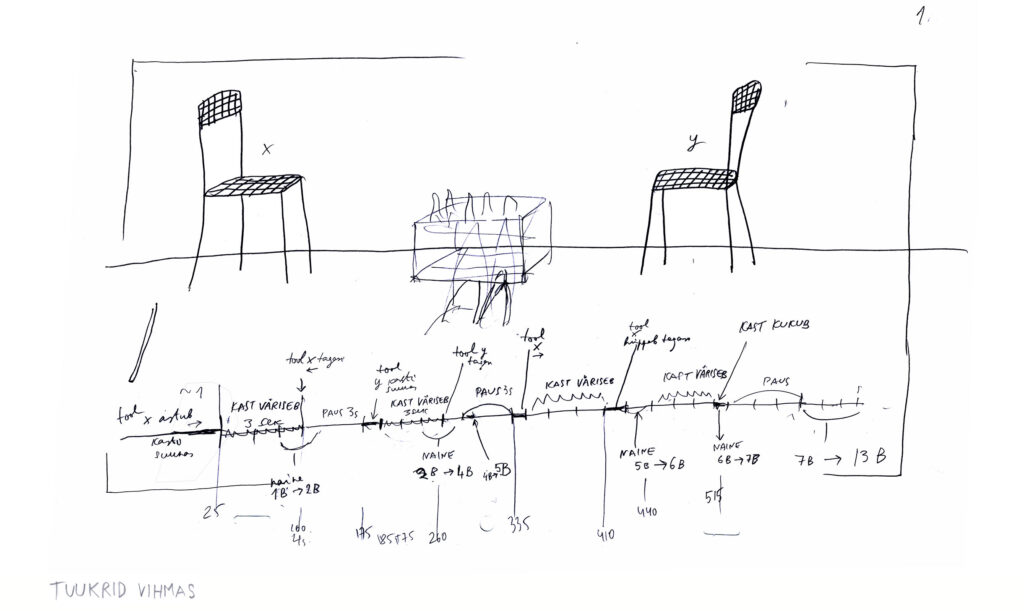 1.
x
y
tool x astub →
kasti
suunas
~1
KAST VÄRISEB
3 SEK
tool x tagasi
←
PAUS 3s
tool
y kasti
suunas
KAST VÄRISEB
3 SEK
tool y
tagasi
PAUS 3s
tool
x
→
KAST VÄRISEB
tool
x
hüppab tagasi
KAST VÄRISEB
KAST KUKUB
PAUS
naine
1B → 2B
NAINE
2B → 4B
4B→5B
NAINE
5B → 6B
NAINE
6B → 7B
7B → 13B
25
100
175
185
260
335
410
440
515
TUUKRID VIHMAS